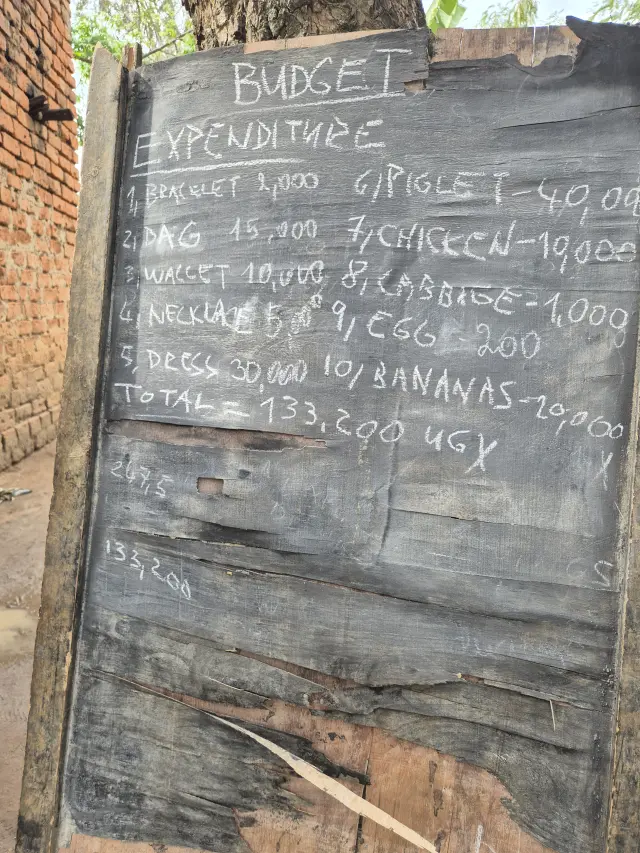 BUDGET
EXPENDITURE
1, BRACELET 2,000 6, PIGLET - 40,00
2, BAG 15,000 7, CHICKEN - 10,000
3, WALLET 10,000 8, CABBAGE - 1,000
4, NECKLACE 5,000 9, EGG - 200
5, DRESS 30,000 10, BANANAS - 20,000
TOTAL = 133,200 UGX X
267,5
133,200 S